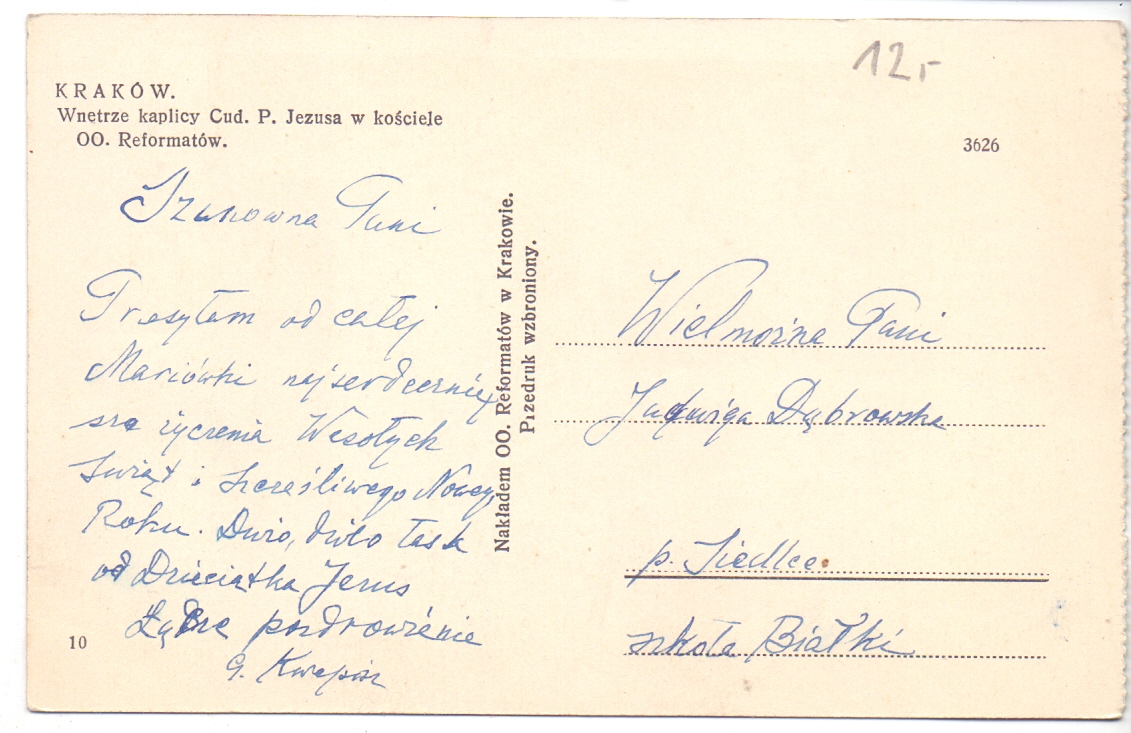 12,-
KRAKÓW.
Wnętrze kaplicy Cud. P. Jezusa w kościele
OO. Reformatów.
3626
Szanowna Pani
Przesyłam od całej
Mariówki najserdeczniej
sze życzenia Wesołych
Świąt i Szczęśliwego Nowego
Roku. Dużo, dużo łask
od Dzieciątka Jezus
pozdrowienie
G. Kwapisz
10
Nakładem OO. Reformatów w Krakowie.
Przedruk wzbroniony.
Wielmożna Pani
Jadwiga Dąbrowska
p. Siedlce.
szkoła Białki